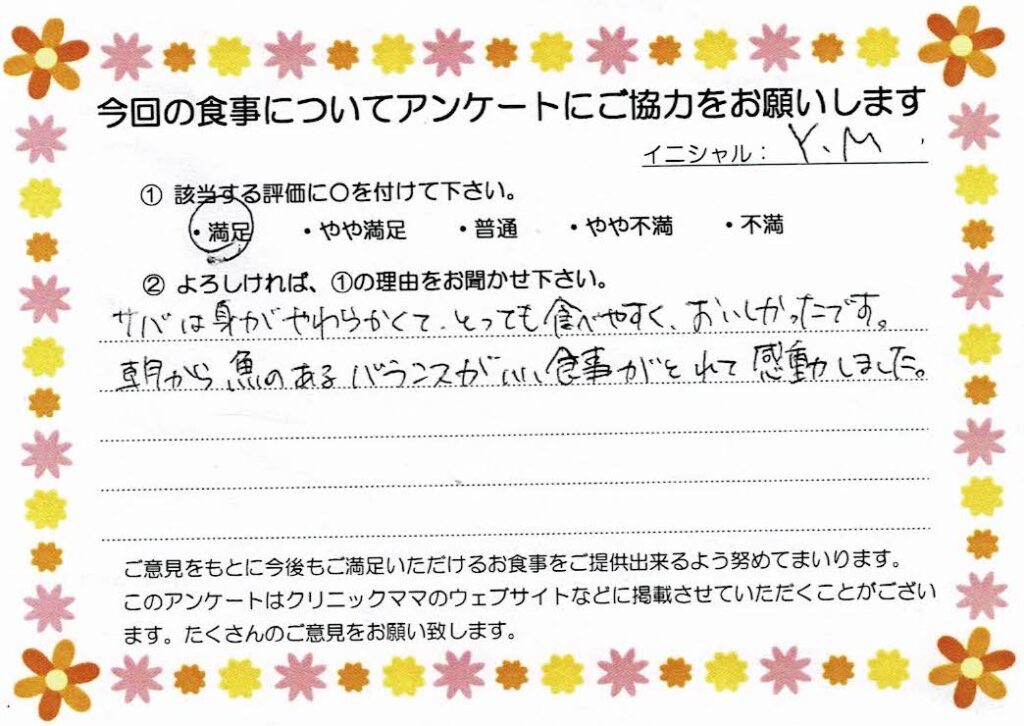 今回の食事についてアンケートにご協力をお願いします
イニシャル： Y.M.
① 該当する評価に〇を付けて下さい。
・満足 ・やや満足 ・普通 ・やや不満 ・不満
② よろしければ、①の理由をお聞かせ下さい。
サバは身がやわらかくて、とっても食べやすく、おいしかったです。
朝から魚のあるバランスがいい食事がとれて感動しました。
ご意見をもとに今後もご満足いただけるお食事をご提供出来るよう努めてまいります。
このアンケートはクリニックママのウェブサイトなどに掲載させていただくことがござい
ます。たくさんのご意見をお願い致します。